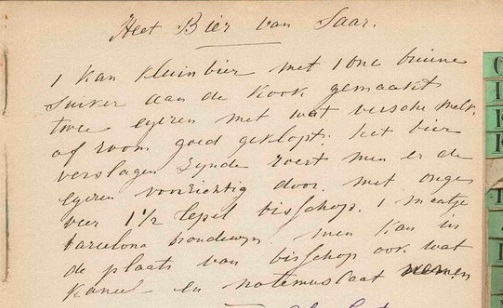 Heet Bier van Saar.
1 kan kleinbier met 1 onc bruine
suiker aan de kook gemaakt
twee eyeren met wat versche melk
of room goed geklopt. het bier
verslagen zynde roert men er de
eyeren voorzichtig door. met onge
veer 1½ lepel bisschop. 1 maatje
barcelona brandewyn. men kan in
de plaats van bisschop ook wat
kaneel en notemuskaat nemen